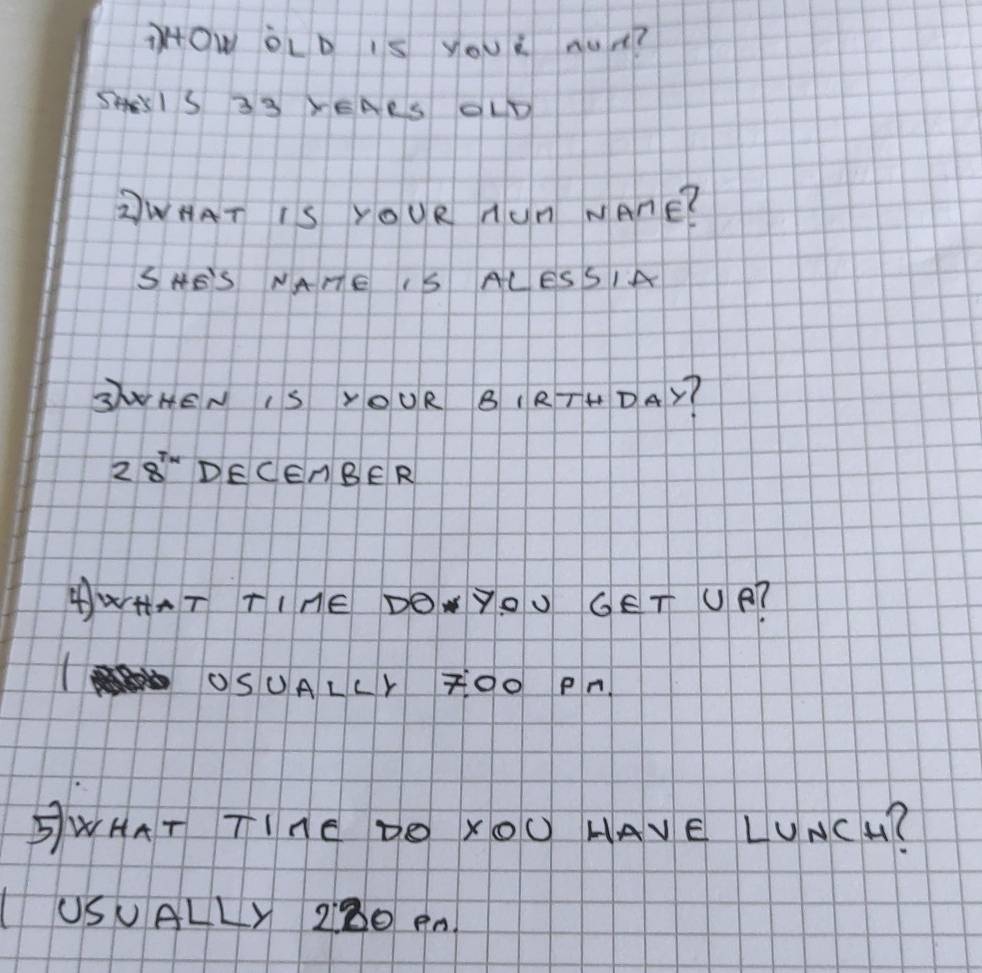 1) HOW OLD IS YOUR MUM?
SHE'S IS 33 YEARS OLD
2) WHAT IS YOUR MUM NAME?
SHE'S NAME IS ALESSIA
3) WHEN IS YOUR BIRTHDAY?
28TH DECEMBER
4) WHAT TIME DO YOU GET UP?
I USUALLY 7:00 PM.
5) WHAT TIME DO YOU HAVE LUNCH?
I USUALLY PM.